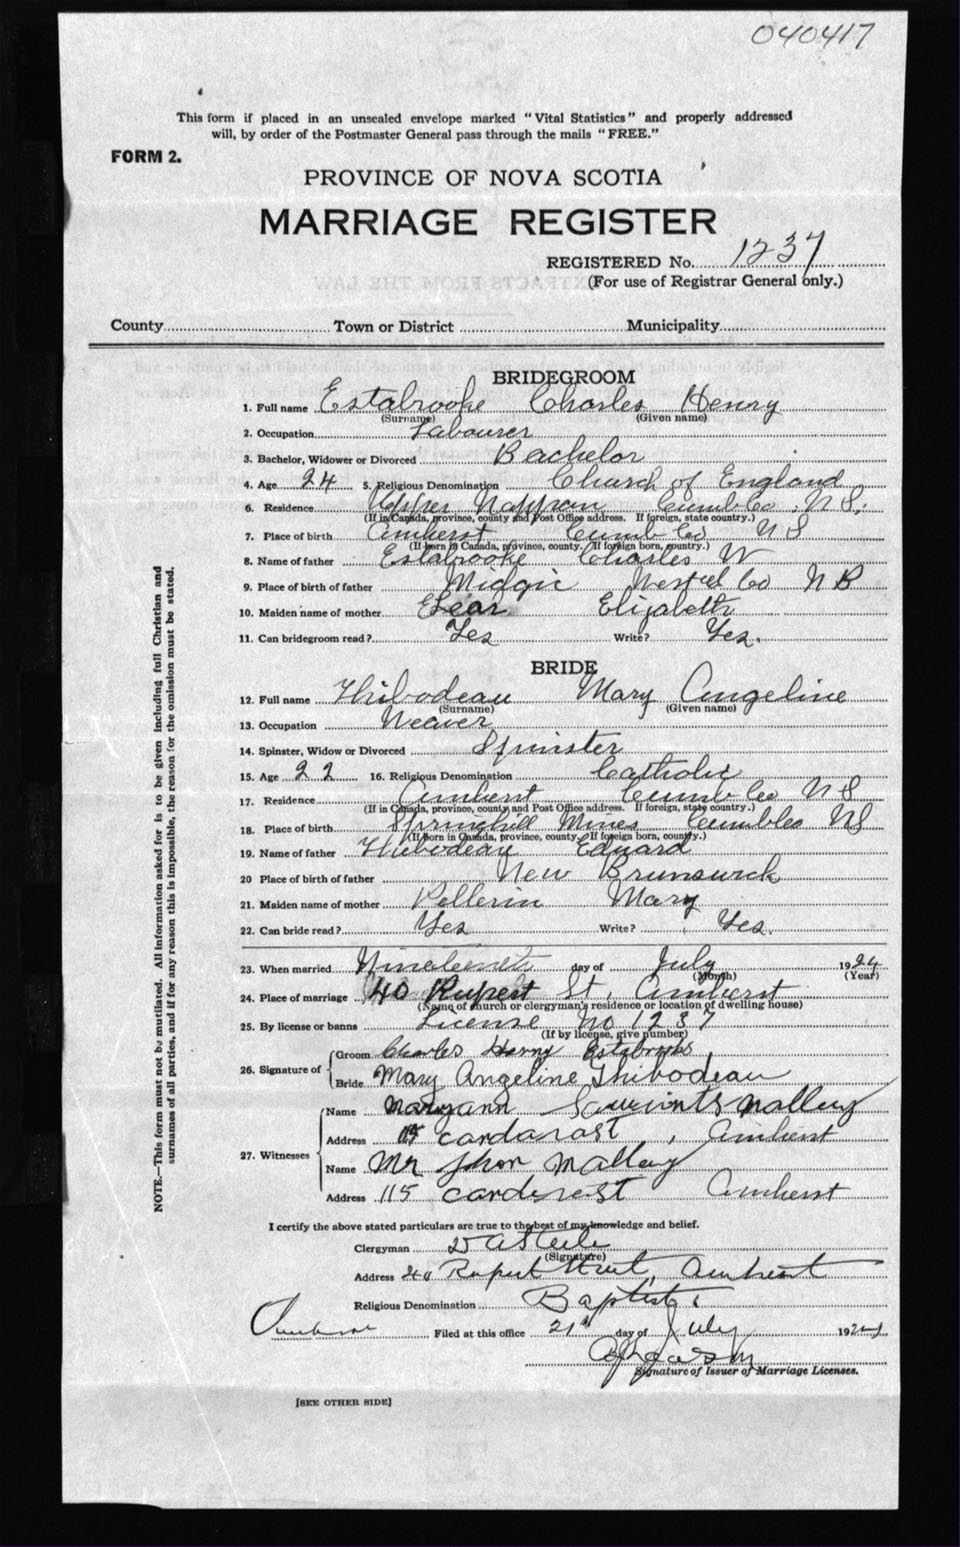 040417
This form if placed in an unsealed envelope marked "Vital Statistics" and properly addressed
will, by order of the Postmaster General pass through the mails "FREE."
FORM 2.
PROVINCE OF NOVA SCOTIA
MARRIAGE REGISTER
REGISTERED No. 1237
(For use of Registrar General only.)
County Town or District Municipality
BRIDEGROOM
1. Full name Estabrooke Charles Henry
(Surname) (Given name)
2. Occupation Labourer
3. Bachelor, Widower or Divorced Bachelor
4. Age 24 5. Religious Denomination Church of England
6. Residence Upper Nappan Cumb Co. N S.
(If in Canada, province, county and Post Office address. If foreign, state country.)
7. Place of birth Amherst Cumb Co N S
(If born in Canada, province, county. If foreign born, country.)
8. Name of father Estabrooke Charles W
9. Place of birth of father Midgic West'd Co N B
10. Maiden name of mother Elizabeth
11. Can bridegroom read? Yes Write? Yes.
BRIDE
12. Full name Thibodeau Mary Angeline
(Surname) (Given name)
13. Occupation Weaver
14. Spinster, Widow or Divorced Spinster
15. Age 22 16. Religious Denomination Catholic
17. Residence Amherst Cumb Co N S
(If in Canada, province, county and Post Office address. If foreign, state country.)
18. Place of birth Springhill Mines Cumb Co NS
(If born in Canada, province, county. If foreign born, country.)
19. Name of father Thibodeau Eduard
20 Place of birth of father New Brunswick
21. Maiden name of mother Pellerin Mary
22. Can bride read? Yes Write? Yes.
23. When married Nineteenth day of July 1924
(Month) (Year)
24. Place of marriage 40 Rupert St, Amherst
(Name of church or clergyman's residence or location of dwelling house)
25. By license or banns License No 1237
(If by license, give number)
26. Signature of
Groom Charles Henry Estabrooks
Bride Mary Angeline Thibodeau
27. Witnesses
Name Maryann Mallery
Address 115 , Amherst
Name Mr Mallery
Address 115 Amherst
I certify the above stated particulars are true to the best of my knowledge and belief.
Clergyman Steele
(Signature)
Address 40 Rupert Street, Amherst
Religious Denomination Baptist
Filed at this office 21st day of July 1924
Signature of Issuer of Marriage Licenses.
[SEE OTHER SIDE]
NOTE.—This form must not be mutilated. All information asked for is to be given including full Christian and
surnames of all parties, and if for any reason this is impossible, the reason for the omission must be stated.